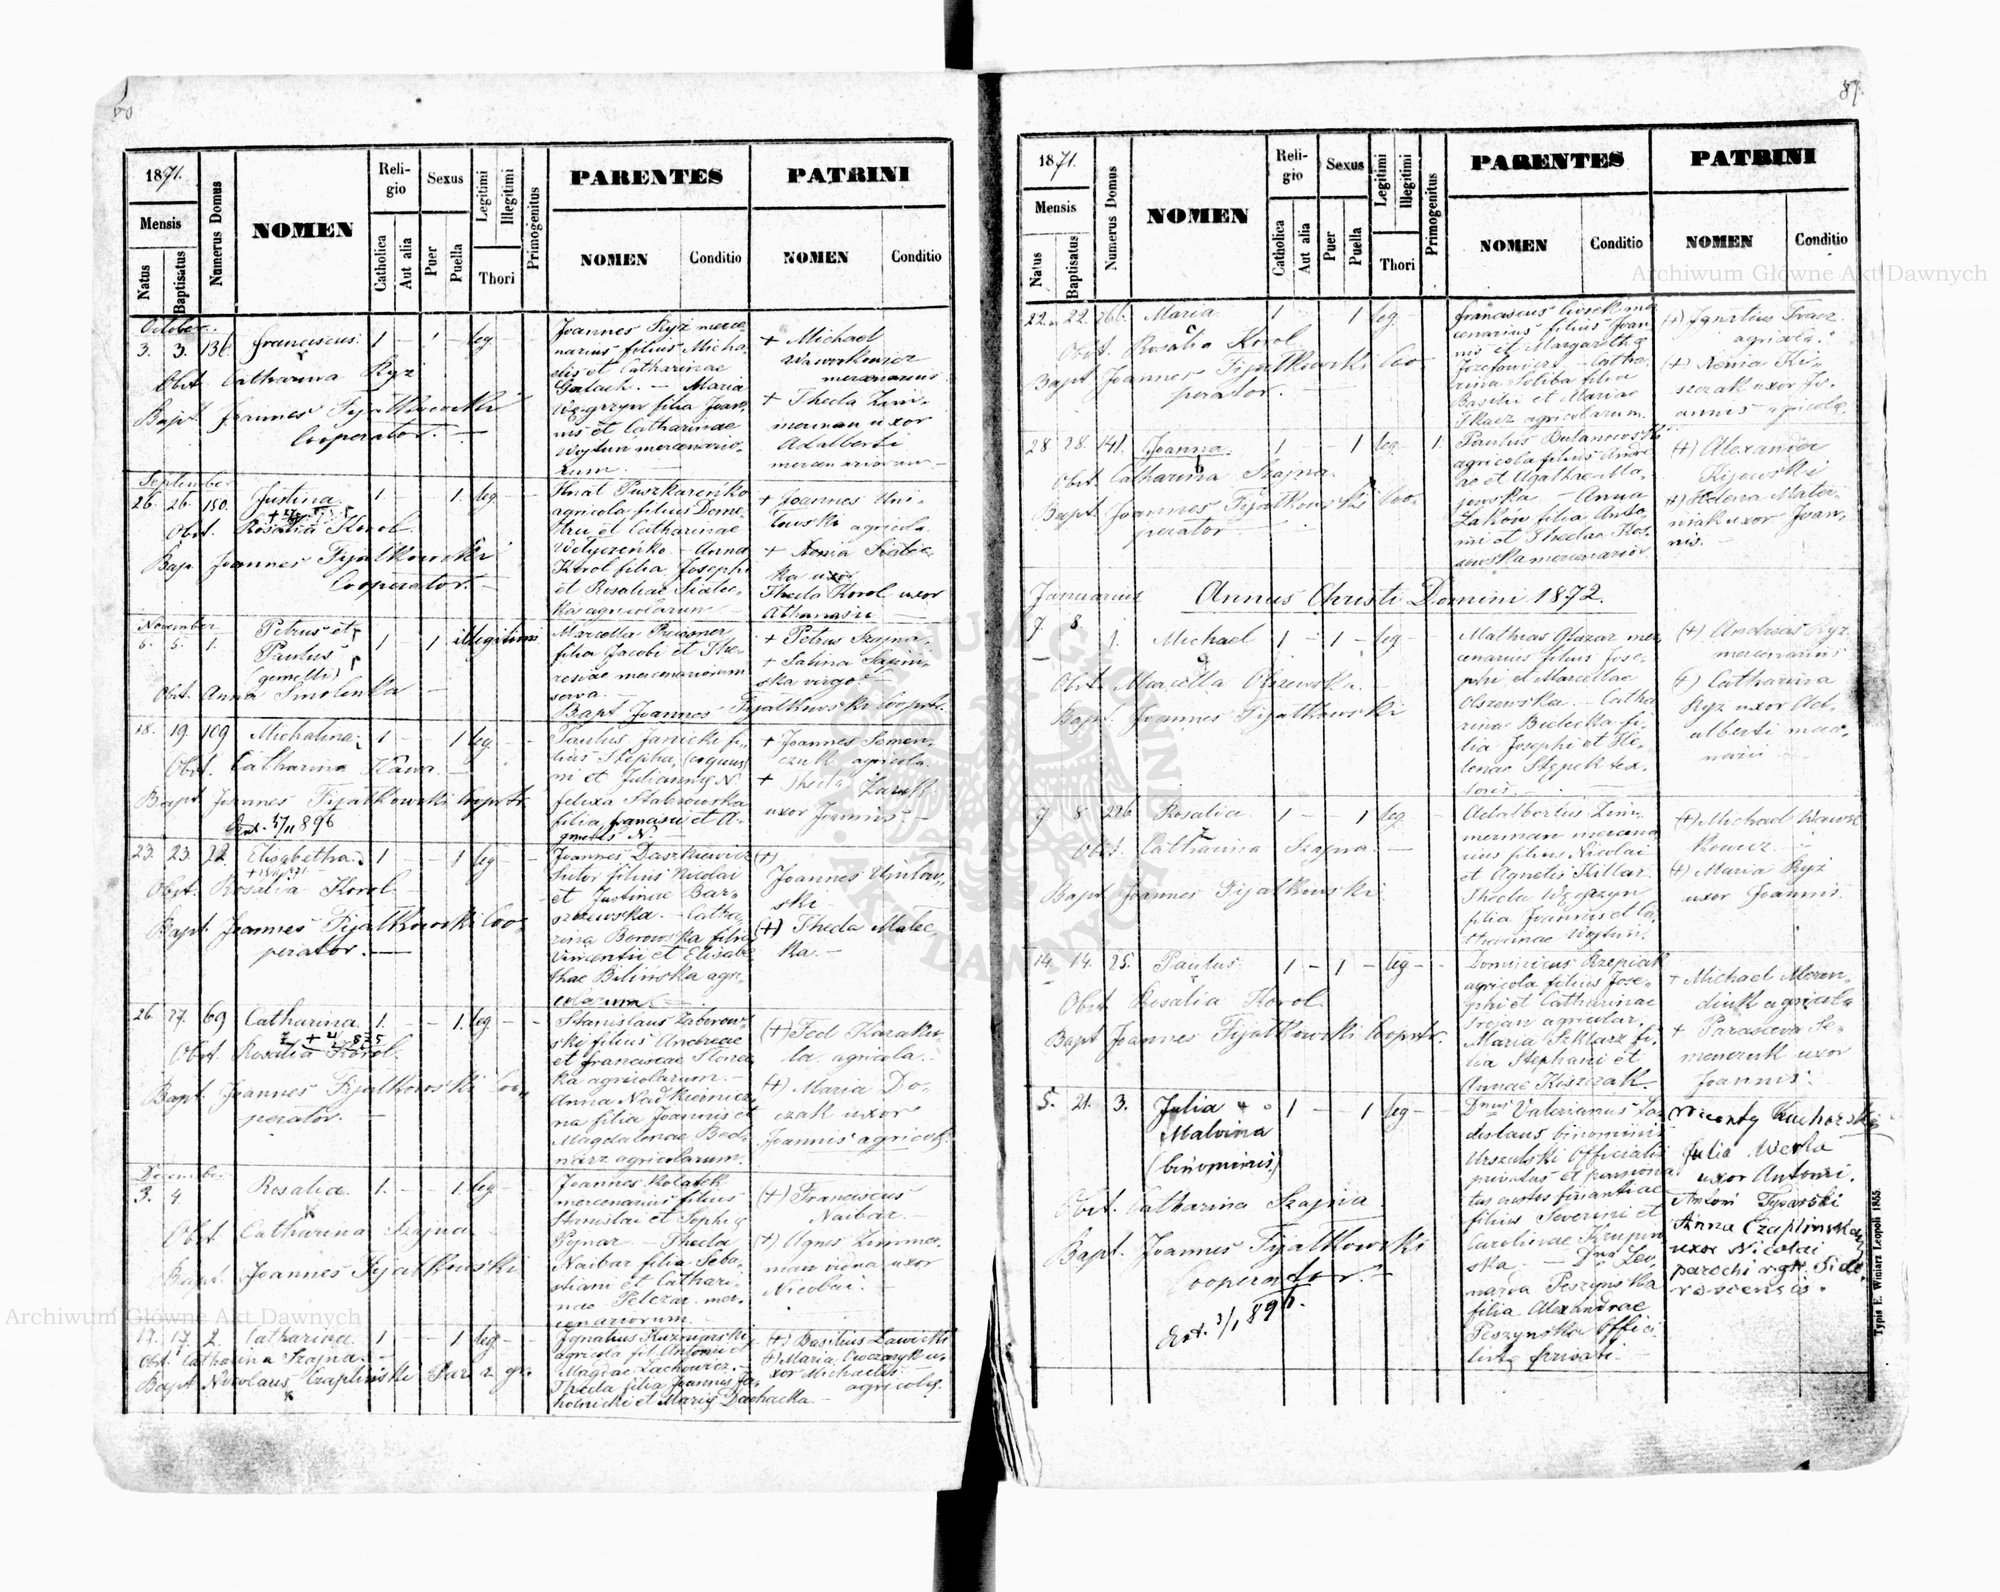 80
1871.
Mensis
Natus
Baptisatus
Numerus Domus
NOMEN
Reli-
gio
Catholica
Aut alia
Sexus
Puer
Puella
Legitimi
Illegitimi
Thori
Primogenitus
PARENTES
NOMEN
Conditio
PATRINI
NOMEN
Conditio
October.
3. 3. 136. Franciscus. 1 - 1 - leg.
Obst. Catharina Ryz
Bapt. Joannes Fijałkowski
Cooperator.
Joannes Ryż merce-
narius filius Micha-
elis et Catharinae
Galach. — Maria
Węgrzyn filia Joan-
nis et Catharinae
Wojtun mercenario-
rum.
+ Michael
Wawrkowicz
mercenarius
+ Thecla Zim-
merman uxor
Adalberti
mercenariorum
September
26. 26. 150. Justina 1 - - 1. leg
Obst. Rosalia Korol.
Bap. Joannes Fijałkowski
Cooperator.
Ihnat Puszkareńko
agricola filius Deme-
tru et Catharinae
Welyczeńko — Anna
Korol filia Josephi
et Rosaliae Siatec-
ka agricolarum
+ Joannes Uni-
towski agricola
+ Xenia Siatec-
ka uxor
Thecla Korol uxor
Athanasii
November
5. 5. 1. Petrus et
Paulus
(gemelli) 1 - 1 illegitimi
Obst. Anna Smolenka
Marcella Preisner
filia Jacobi et The-
resiae mercenariorum
serva.
Bapt Joannes Fijałkowski Cooprtr.
+ Petrus Szajna
+ Salina Sapin-
ska virgo
18. 19. 109 Michalina 1 - - 1 leg.
Obst. Catharina Kawa.
Bapt Joannes Fijałkowski Cooprtr.
Ext. 5/11 896
Paulus Janicki fi-
lius Stepha, (coquus)
ni et Juliannę N
felixa Stabrowska
filia, franasii et A-
gnetis N.
+ Joannes Semen-
czuk agricola.
+ Thecla
uxor Joannis
23. 23. 22. Elisabetha 1 - - 1 leg
Obst. Rosalia Korol
Bapt. Joannes Fijałkowski Coo-
perator.
Joannes Daszkiewicz
Sutor filius Nicolai
et Justinae Bar-
szczewska. — Catha-
rina Borowska filia
Vincentii et Elisabe
thae Bilinska agri-
colarum.
(+)
Joannes Unitow-
ski
(+) Thecla Malec
ka.
26. 27. 69 Catharina 1. - - 1. leg
Obst. Rosalia Korol.
Bapt. Joannes Fijałkowski Coo-
perator.
Stanislaus Zaborow-
ski filius Andreae
et franciscae Slonec
ka agricolarum.
Anna Nadkiernicz
na filia Joannis et
Magdalenae Bed-
narz agricolarum.
(+) Fed Karaku-
la agricola.
(+) Maria Do-
czak uxor
Joannis agricola.
December
3. 4. Rosalia 1. - - 1. leg
Obst Catharina Szajna
Bapt. Joannes Fijałkowski
Joannes Kolasek
mercenarius filius
Stanislai et Sophię
Pejnar. — Thecla
Naibar filia Seba-
stiani et Cathari-
nae Pelczar mer-
cenariorum.
(+) Franciscus
Naibar.
(+) Agnes Zimmer-
man vidua uxor
Nicolai.
17. 17. 2. Catharina 1 - - 1 leg
Obst. Catharina Szajna.
Bapt. Nicolaus Czapliński Par r gr.
Ignatius Kuzniarski
agricola fil. Antonii et
Magdae Lachowicz.
Thecla filia Joannis Ja-
holnicki et Marię Dachacka
(+) Basilius Ławicki
(+) Maria Owczaryk u-
xor Michaelis
agricolę.
81
1871.
Mensis
Natus
Baptisatus
Numerus Domus
NOMEN
Reli-
gio
Catholica
Aut alia
Sexus
Puer
Puella
Legitimi
Illegitimi
Thori
Primogenitus
PARENTES
NOMEN
Conditio
PATRINI
NOMEN
Conditio
22. 22. 266. Maria 1 1 leg.
Obst. Rosalia Korol.
Bapt Joannes Fijałkowski Coo-
perator.
Franciscus
cenarius filius Joan-
nis et Margarethę
Jozefowicz — Catha-
rina Soliba filia
Basilii et Mariae
Tkacz agricolarum.
(+) Ignatius Tracz
agricola.
(+) Xenia Ki-
szczak uxor Jo-
annis agricolę.
28. 28. 141. Joanna 1 - - 1 leg. 1
Obst. Catharina Szajna.
Bapt. Joannes Fijałkowski Coo-
perator
Paulus Bulanowski
agricola filius Andre
ae et Agathae Ma-
jewska — Anna
Lakom filia Anto-
ni et Theclae Kos-
sowska mercenarior
(+) Alexander
Kijowski
(+) Helena Mater-
niak uxor Joan-
nis.
Januarius Annus Christi Domini 1872.
7. 8. 1. Michael 1 - 1 - leg
Obst. Marcella Olszewska.
Bapt. Joannes Fijałkowski
Mathias Głazar mer-
cenarius filius Jose-
phi et Marcellae
Olszewska. — Catha
rina Bielecka fi-
lia Josephi et He-
lenae Stępek tex-
toris.
(+) Andreas Ryz
mercenarius
(+) Catharina
Ryz uxor Ad-
alberti merce-
narii
7 8 226 Rosalia 1 - - 1 leg.
Obst. Catharina Szajna.
Bapt Joannes Fijałkowski.
Adalbertus Zim-
merman mercena-
rius filius Nicolai
et Agnetis Killar.
Thecla Węgrzyn
filia Joannis et Ca-
tharinae Wojtun.
(+) Michael Wawr
kowicz.
(+) Maria Ryż
uxor Joannis.
14. 14. 25. Paulus 1 - 1 - leg
Obst Rosalia Korol.
Bapt Joannes Fijałkowski Cooprtr.
Dominicus Rzepiak
agricola filius Jose-
phi et Catharinae
Trojan agricolar.
Maria Szklarz fi-
lia Stephani et
Annae Kiszczak.
+ Michael Maran-
diuk agricola
+ Parasceva Se-
menczuk uxor
Joannis.
5. 21. 3. Julia
Malvina
(binominis) 1 - 1 leg
Obst. Catharina Szajna
Bapt. Joannes Fijałkowski
Cooperator.
Ext. 3/1 896.
Dnus Valerianus La-
dislaus binominis
Urszulski Officialis
privatus et pensiona
tus custos finantiae
filius Severini et
Carolinae Krupin
ska. — Dna Leo-
narda Peszynska
filia Alexandrae
Peszynska Offici
listę privati.
Wicenty Kucharski
Julia Werla
uxor Antoni.
Antoni Tyrarski
Anna Czaplinska
uxor Nicolai
parochi r. gr. Sido
roviensis.
Typis E. Winiarz Leopoli 1855
Archiwum Główne Akt Dawnych
Archiwum Główne Akt Dawnych
ARCHIWUM GŁÓWNE
AKT DAWNYCH